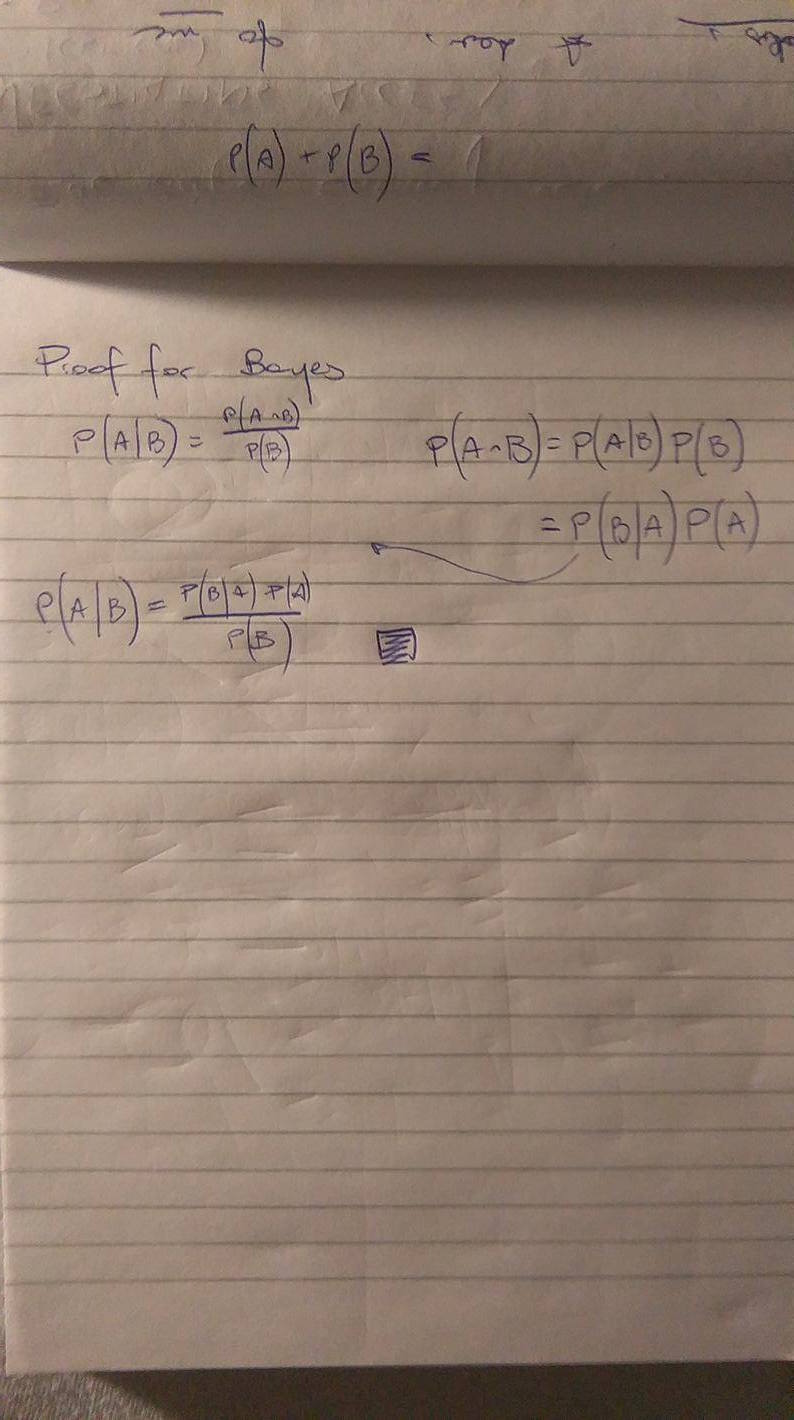 P(A) + P(B) =
Proof for Bayes
P(A|B) = P(A∩B)/P(B)
P(A∩B) = P(A|B) P(B)
= P(B|A) P(A)
P(A|B) = P(B|A) P(A)/P(B)